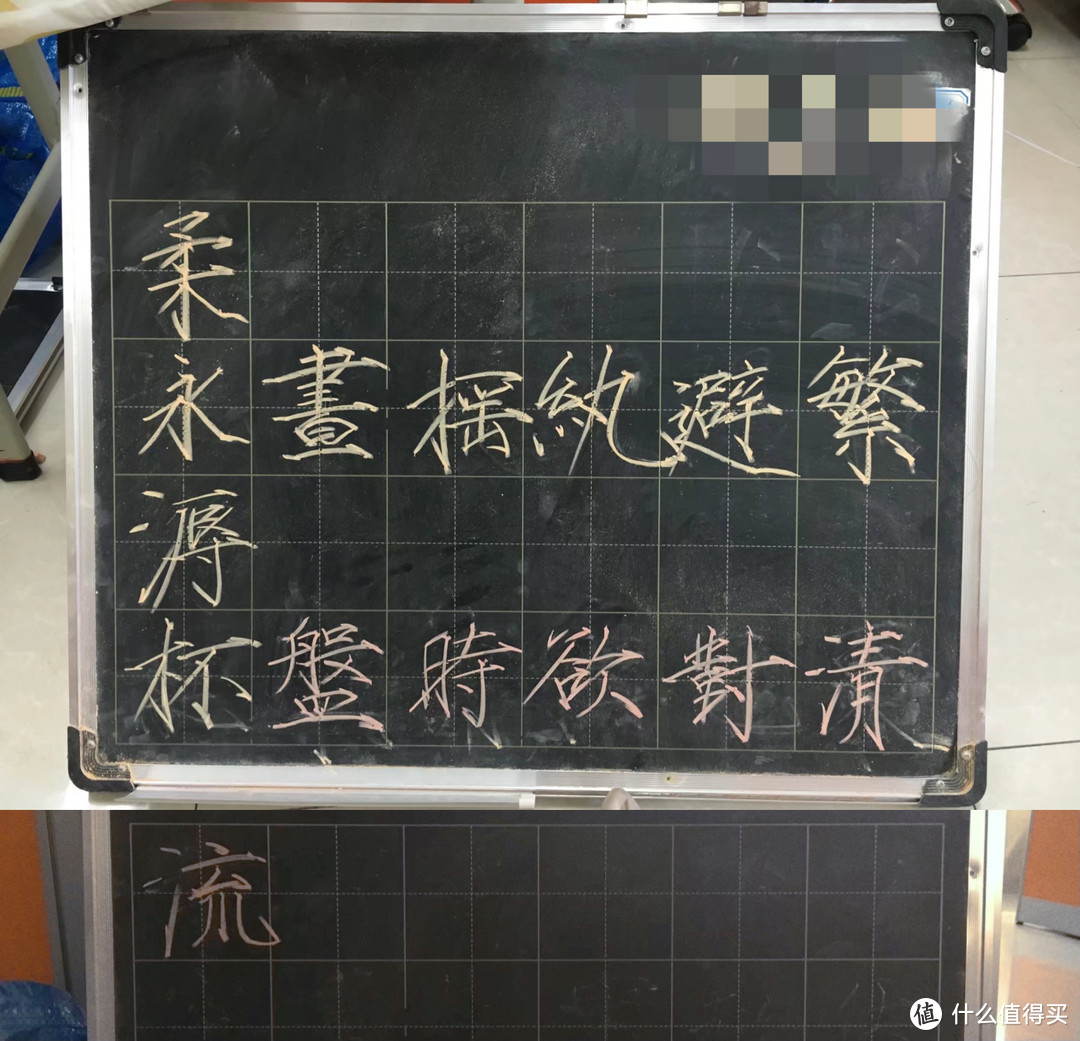 柔
永晝摇紈避繁
溽
杯盤時欲對清
流
值 什么值得买